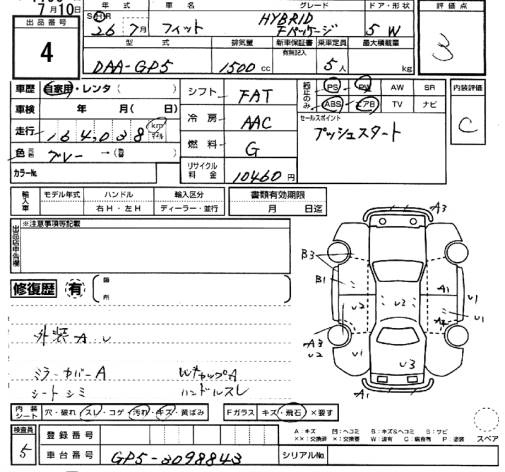 7月10日
年 式 車 名 グレード ドア・形状 評価点
出品番号
4
SHR 26 年 7月 フィット HYBRID Fパッケージ 5 W
3
型 式 排気量 新車保証書 乗車定員 最大積載量
有無記入
DAA-GP5 1500 cc 5人 kg
車歴 自家用・レンタ ( )
シフト FAT
純正のみ PS PW AW SR
ABS エアB TV ナビ
内装評価
C
車検 年 月( 日)
冷房 AAC
セールスポイント
プッシュスタート
走行 164,038 km
マイル
燃料 G
色 グレー → (替 )
リサイクル料金 10460 円
カラーNo.
輸入車 モデル年式 ハンドル 輸入区分
右H・左H ディーラー・並行
書類有効期限
月 日迄
出品店申告欄 ※注意事項等記載
修復歴 有 ( 箇所 )
外装 A U
ミラーカバーA WキャップA
シートシミ ハンドルスレ
A3
B3
B1
A1
U1
U2
U2
A2
U1
A3
U2
U1
U3
A1
内装シート 穴・破れ スレ・コゲ 汚れ・キズ・黄ばみ
Fガラス キズ・飛石 ×要す
検査員
5
登録番号
A:キズ 凹:ヘコミ B:キズ&ヘコミ S:サビ
××:交換済 ×:交換要 W:波有 C:腐食有 P:塗装 スペア
車台番号 GP5-3098843 シリアルNo.